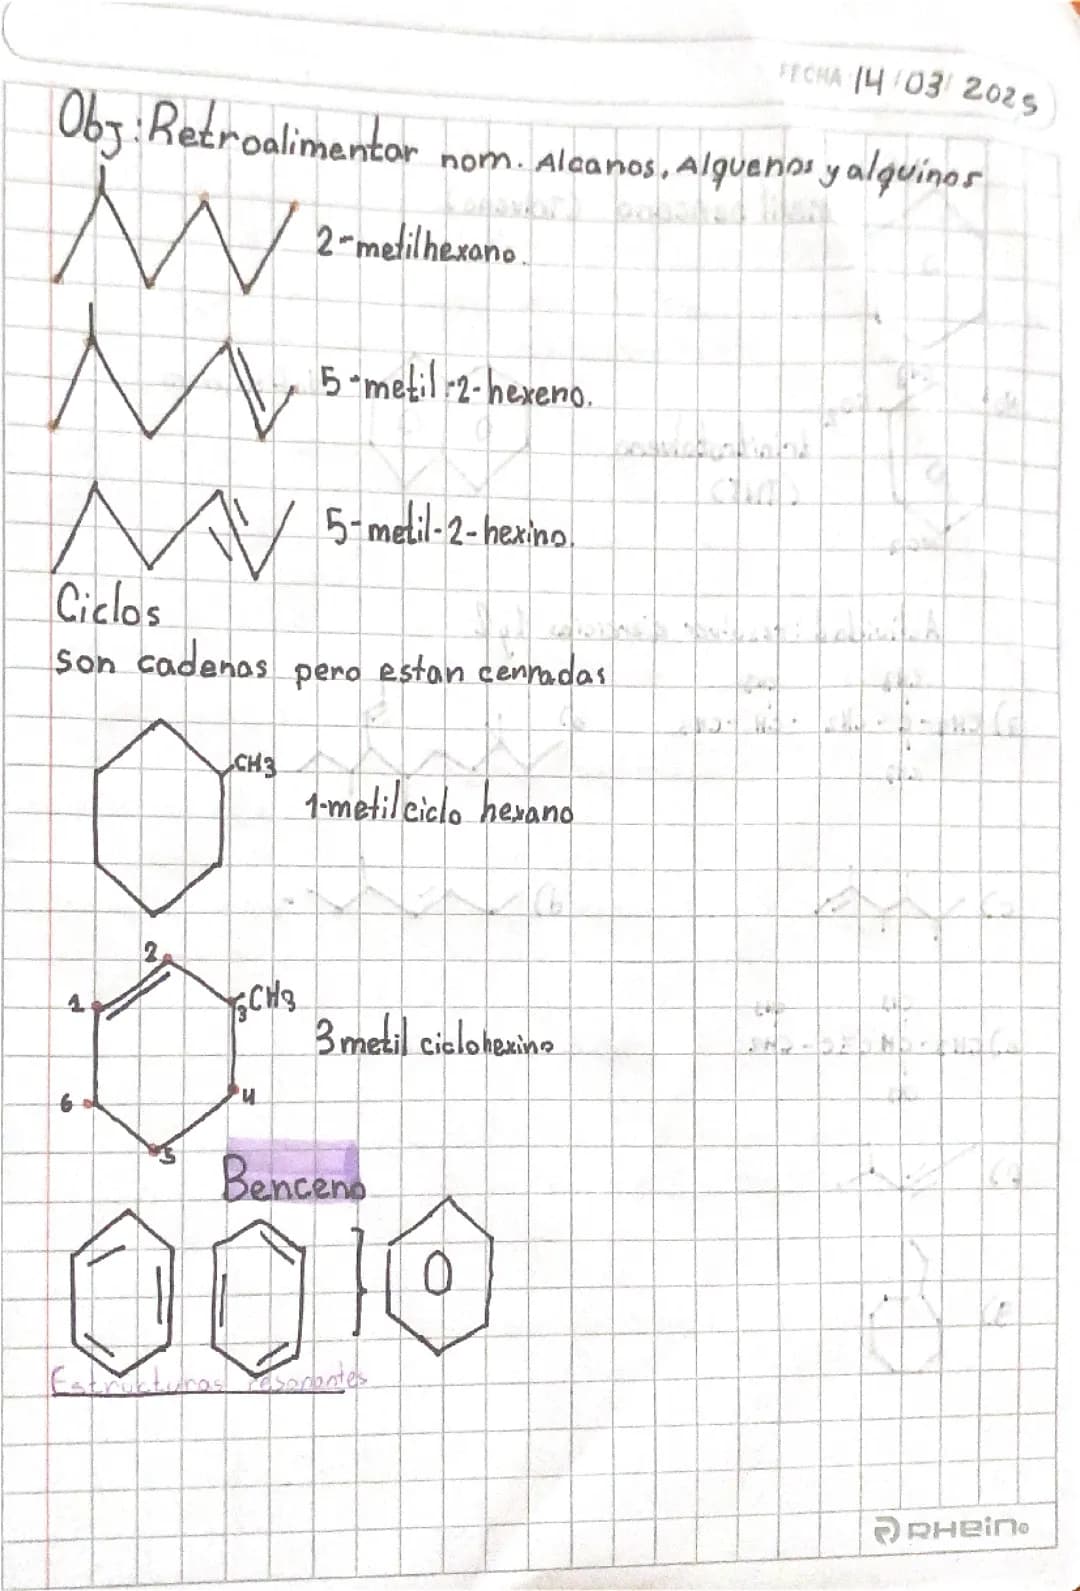 FECHA 14/03/2025
Obj: Retroalimentar nom. Alcanos, Alquenos y alquinos
2-metilhexano.
5-metil-2-hexeno.
5-metil-2-hexino.
Ciclos
son cadenas pero estan cerradas
CH3
1-metilciclo hexano
2
1
3
CH3
3 metil ciclohexino
6
4
5
Benceno
Estructuras resonantes
RHein